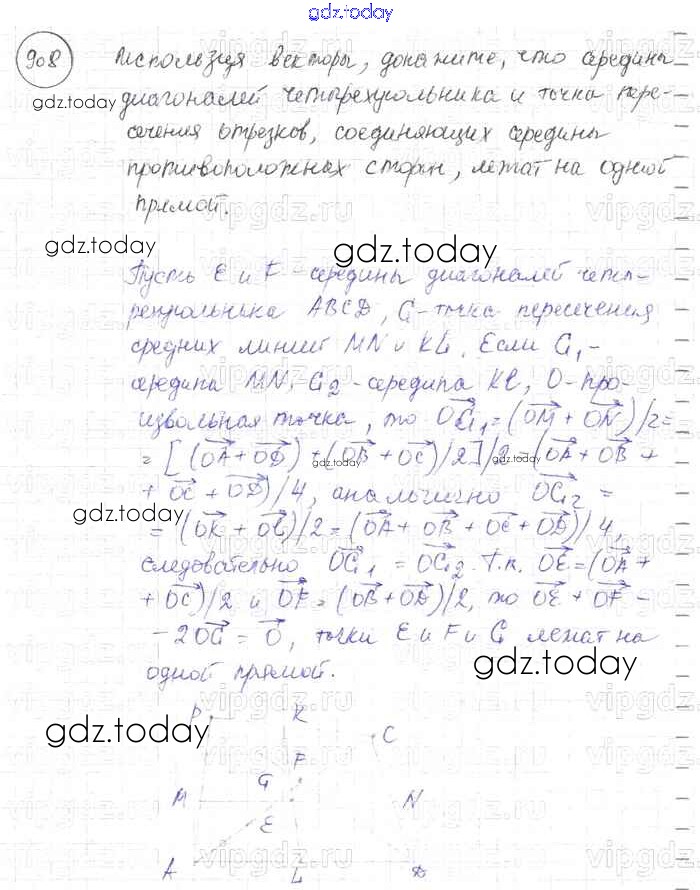 gdz.today
908 Используя векторы, докажите, что середины
gdz.today диагоналей четырехугольника и точка пере-
сечения отрезков, соединяющих середины
противоположных сторон, лежат на одной
прямой.
gdz.today
gdz.today
Пусть E и F - середины диагоналей четы-
рехугольника ABCD, G - точка пересечения
средних линий MN и KL. Если G₁ -
середина MN, G₂ - середина KL, O - про-
извольная точка, то OG₁ = (OM + ON)/2 =
= [(OA + OD) + (OB + OC)/2]/2 = (OA + OB +
gdz.today
+ OC + OD)/4, аналогично OG₂ =
gdz.today
= (OK + OL)/2 = (OA + OB + OC + OD)/4,
следовательно OG₁ = OG₂. Т.к. OE = (OA +
+ OC)/2 и OF = (OB + OD)/2, то OE + OF -
- 2OG = O, точки E и F и G лежат на
одной прямой.
gdz.today
gdz.today
K
C
F
G
M
N
E
A
L
D
vipgdz.ru